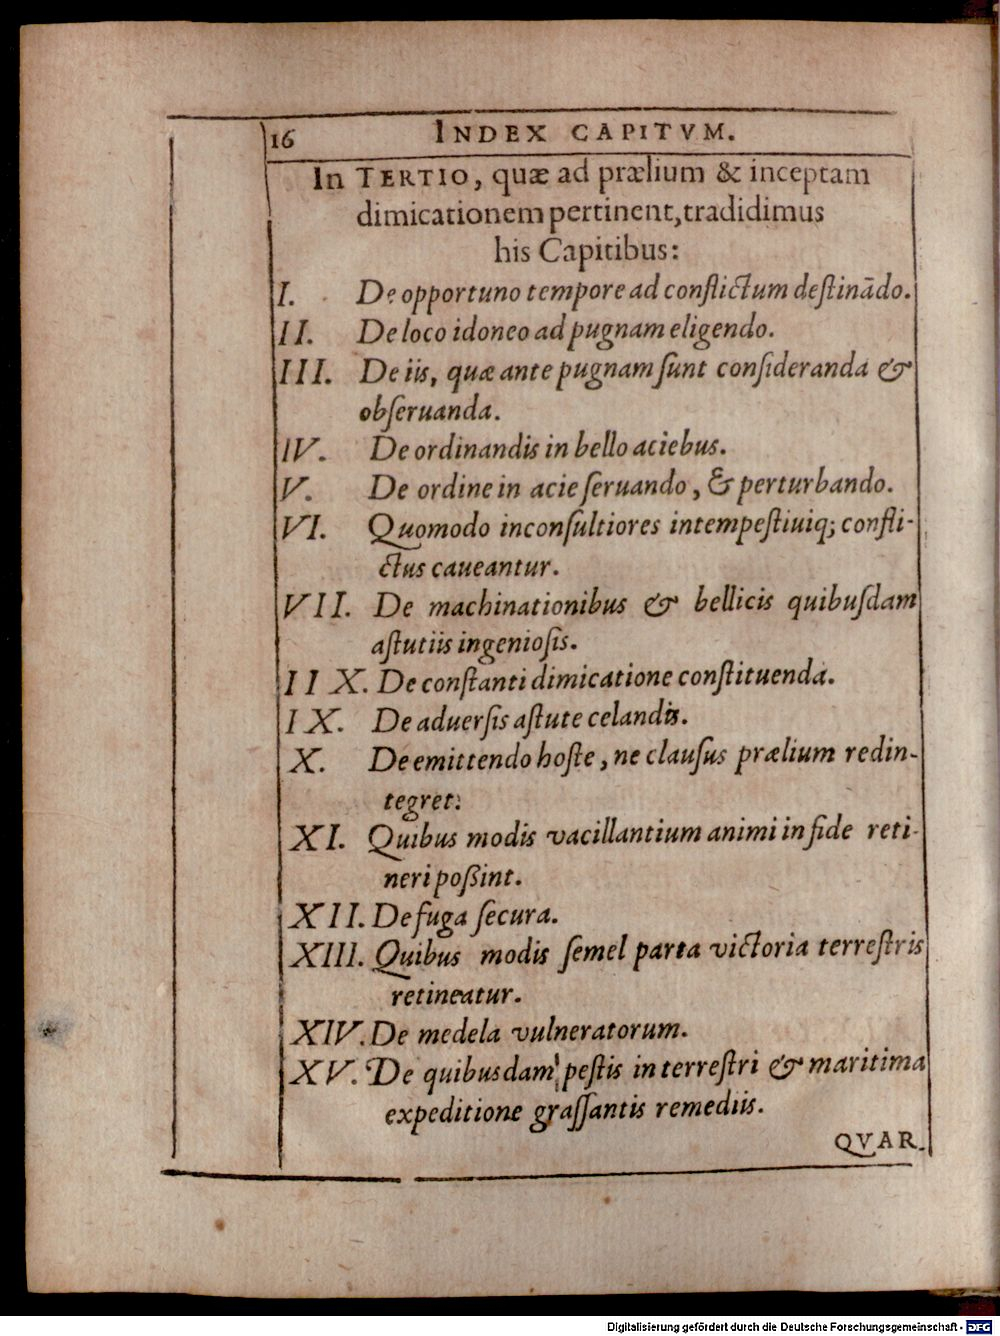 16 INDEX CAPITVM.
In TERTIO, quæ ad prælium & inceptam
dimicationem pertinent, tradidimus
his Capitibus:
I. De opportuno tempore ad conflictum destinādo.
II. De loco idoneo ad pugnam eligendo.
III. De iis, quæ ante pugnam ſunt conſideranda &
obſeruanda.
IV. De ordinandis in bello aciebus.
V. De ordine in acie ſeruando, & perturbando.
VI. Quomodo inconſultiores intempeſtiuiq; confli-
ctus caueantur.
VII. De machinationibus & bellicis quibuſdam
aſtutiis ingenioſis.
IIX. De conſtanti dimicatione conſtituenda.
IX. De aduerſis aſtute celandis.
X. De emittendo hoſte, ne clauſus prælium redin-
tegret.
XI. Quibus modis vacillantium animi in fide reti-
neri poßint.
XII. De fuga ſecura.
XIII. Quibus modis ſemel parta victoria terreſtris
retineatur.
XIV. De medela vulneratorum.
XV. De quibusdam peſtis in terreſtri & maritima
expeditione graſſantis remediis.
QVAR.
Digitalisierung gefördert durch die Deutsche Forschungsgemeinschaft - DFG